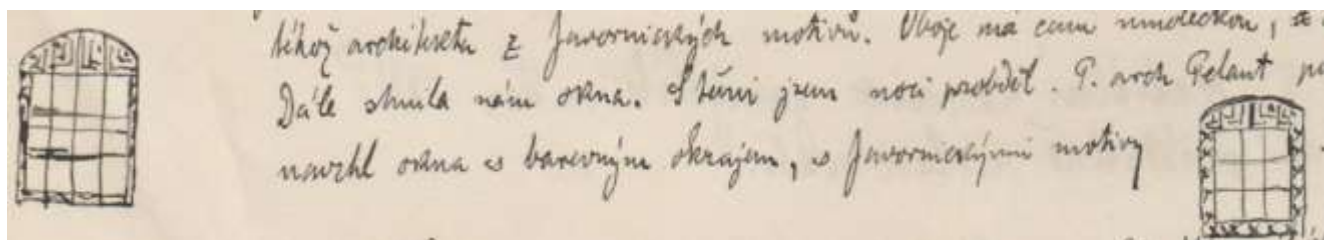 téhož architekta z Javornických motivů. Oboje má cenu uměleckou, a
Dále shnila nám okna. S těmi jsem noci probděl. P. arch Pelant
navrhl okna s barevným okrajem, s Javornickými motivy